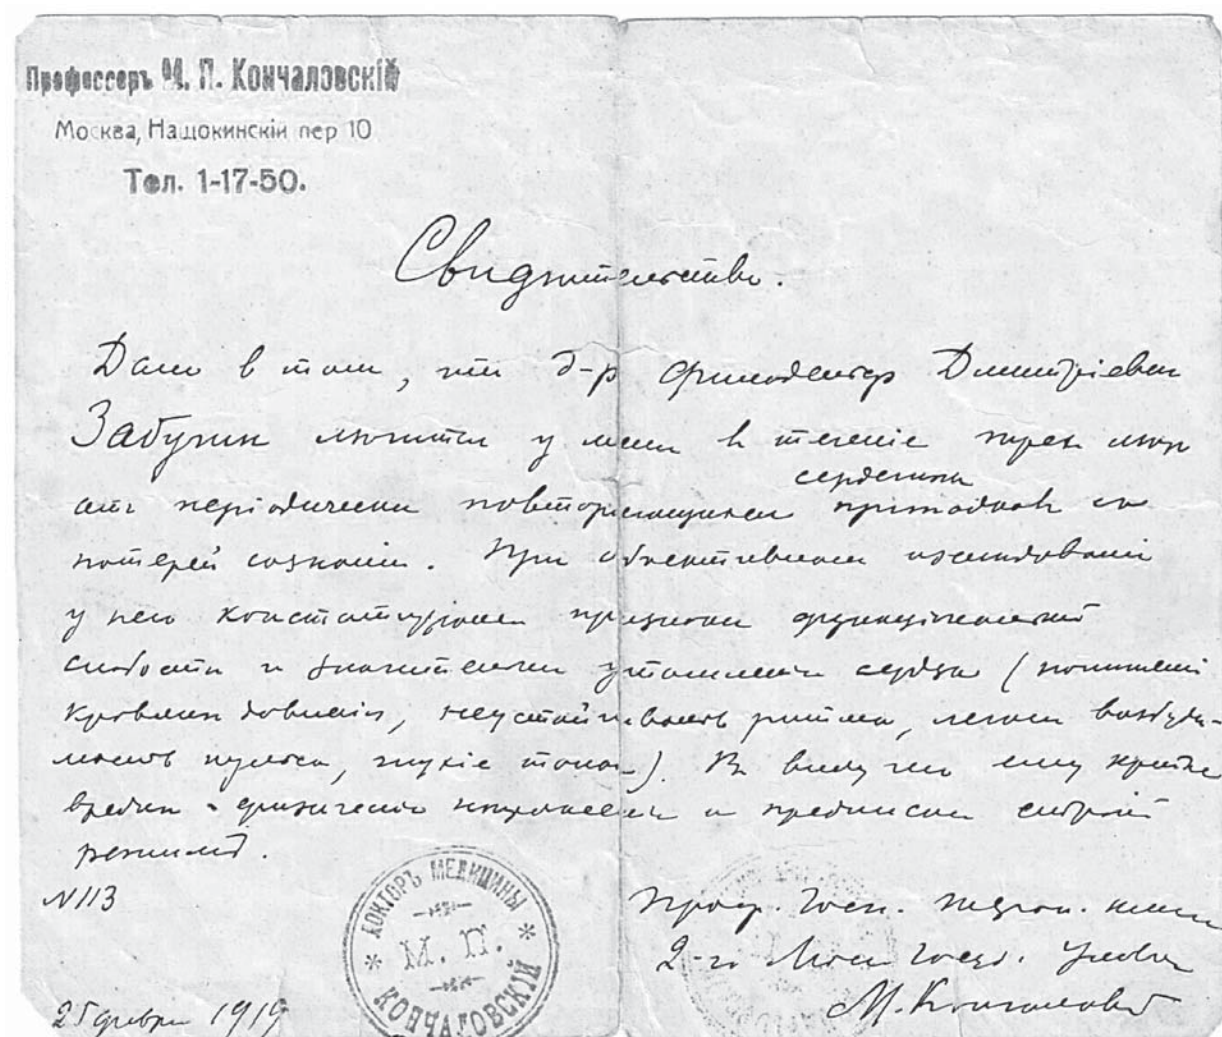 Профессоръ М. П. Кончаловскій
Москва, Нащокинскій пер 10
Тел. 1-17-50.
Свидѣтельство.
Дано в том, что д-р Дмитріевич
Забугин лечится у меня в теченіе трех
сердечных
періодически повторяющихся припадков со
потерей сознанія. При объективном изслѣдованіи
у него констатированы признаки функціональной
слабости и значительнаго утомленія сердца (пониженіе
кровяного давленія, неустойчивость ритма, легкая возбуди-
мость пульса, глухіе тоны). В виду чего ему крайне
вредно физическое напряженіе и предписан строгій
режим.
N 113
ДОКТОРЪ МЕДИЦИНЫ
М. П.
КОНЧАЛОВСКІЙ
Проф. Госп. терап. клин
2-го Моск Госуд. Унив
М. Кончаловскій
25 феврал 1919